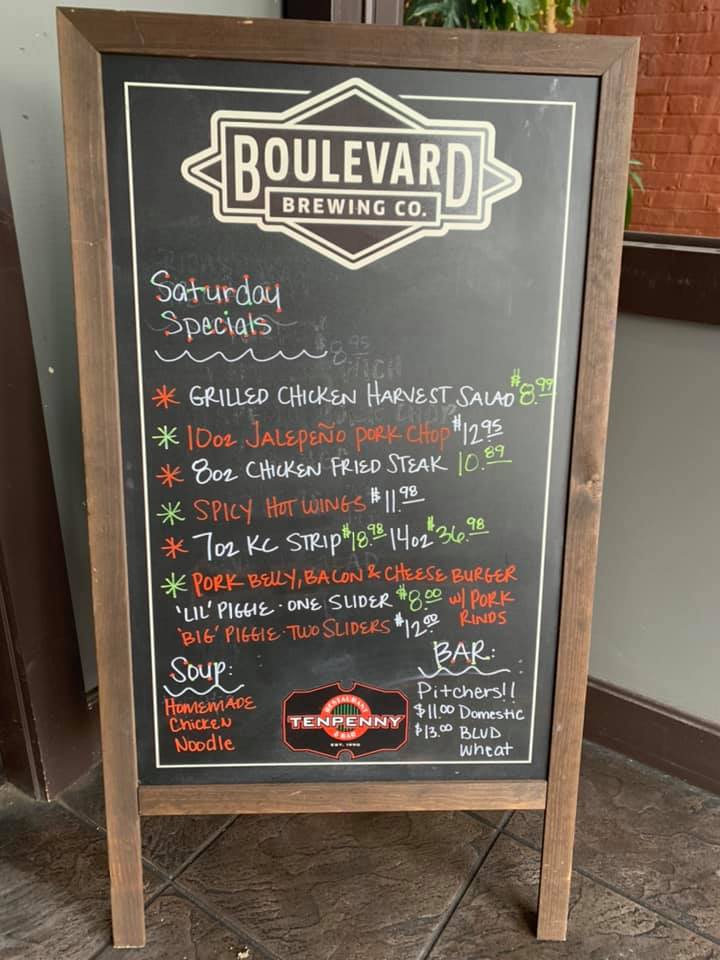 BOULEVARD
BREWING CO.
Saturday
Specials
* GRILLED CHICKEN HARVEST SALAD $8.99
* 10oz JALEPEÑO PORK CHOP $12.95
* 8oz CHICKEN FRIED STEAK 10.89
* SPICY HOT WINGS $11.98
* 7oz KC STRIP $18.98 14oz $36.98
* PORK BELLY, BACON & CHEESE BURGER
'LIL' PIGGIE - ONE SLIDER $8.00 w/ PORK
RINDS
'BIG' PIGGIE - TWO SLIDERS $12.00
Soup:
HOMEMADE
Chicken
Noodle
RESTAURANT
TENPENNY
& BAR
EST. 1990
BAR:
Pitchers!!
$11.00 Domestic
$13.00 BLVD
Wheat